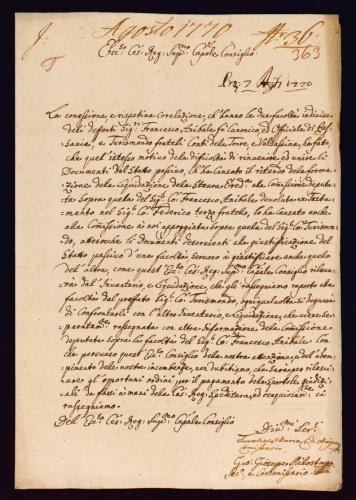 Agosto 1770 N. 36
363
Ecc.so Ces: Reg: Sup.mo Capale Consiglio
Prs: 7 Ag.to 1770
La connessione, e rispettiva Correlazione, ch'hanno le due facoltà indivise
deli defonti Sig.ri Francesco Anibale fù Canonico ed Officiale di
e Turismondo fratelli Conti della Torre, e Vallassina, ha fatto,
che quell'istesso motivo della dificoltà di rinvenire ed unire li
Documenti del Stato passivo, ch'ha causato il ritardo della forma-
zione della Liquidazione della Stenua Ered.tà alla Comissione deputa-
ta sopra quella del Sig.r C. Francesco Anibale devoluta ex Testa-
mento nel Sig.r C. Federico terzo fratello, lo ha causato anche
alla Comissione a noi appoggiata sopra quella del Sig.r C. Turismon-
do, attesoche li Documenti deservienti alla giustificazione del
Stato passivo d'una facoltà servono a giustificare anche quello
dell'altra, come quest'Ecc.so Ces: Reg: Sup.mo Capale Consiglio rileva-
rà dall'Inventario, e Liquidazione, che gli rassegniamo rapporto alla
facoltà del prefato Sig.r C. Turismondo, ogni qual volta si degnarà
di Confrontarli con l'altro Inventario, e Liquidazione, che viene se-
parata.te rassegnata con altra Informazione della Comissione
deputata sopra la facoltà del Sig.r C. Francesco Anibale. Con
che persuaso quest'Ecc.so Consiglio della nostra attenzione, e dell'adem-
pimento delle nostre incombenze, non dubitiamo, che saran per rilas-
siarsi gli opportuni ordini per il pagamento della
ali da farsi a mani della Ces: Reg: Speditura, ed ossequiosam.te ci
rassegniamo.
Del Ecc.so Ces: Reg: Sup.mo Capale Consiglio
Francesco Maria
Comissario
Gio: Giuseppe
Sec.o, e Concomissario.